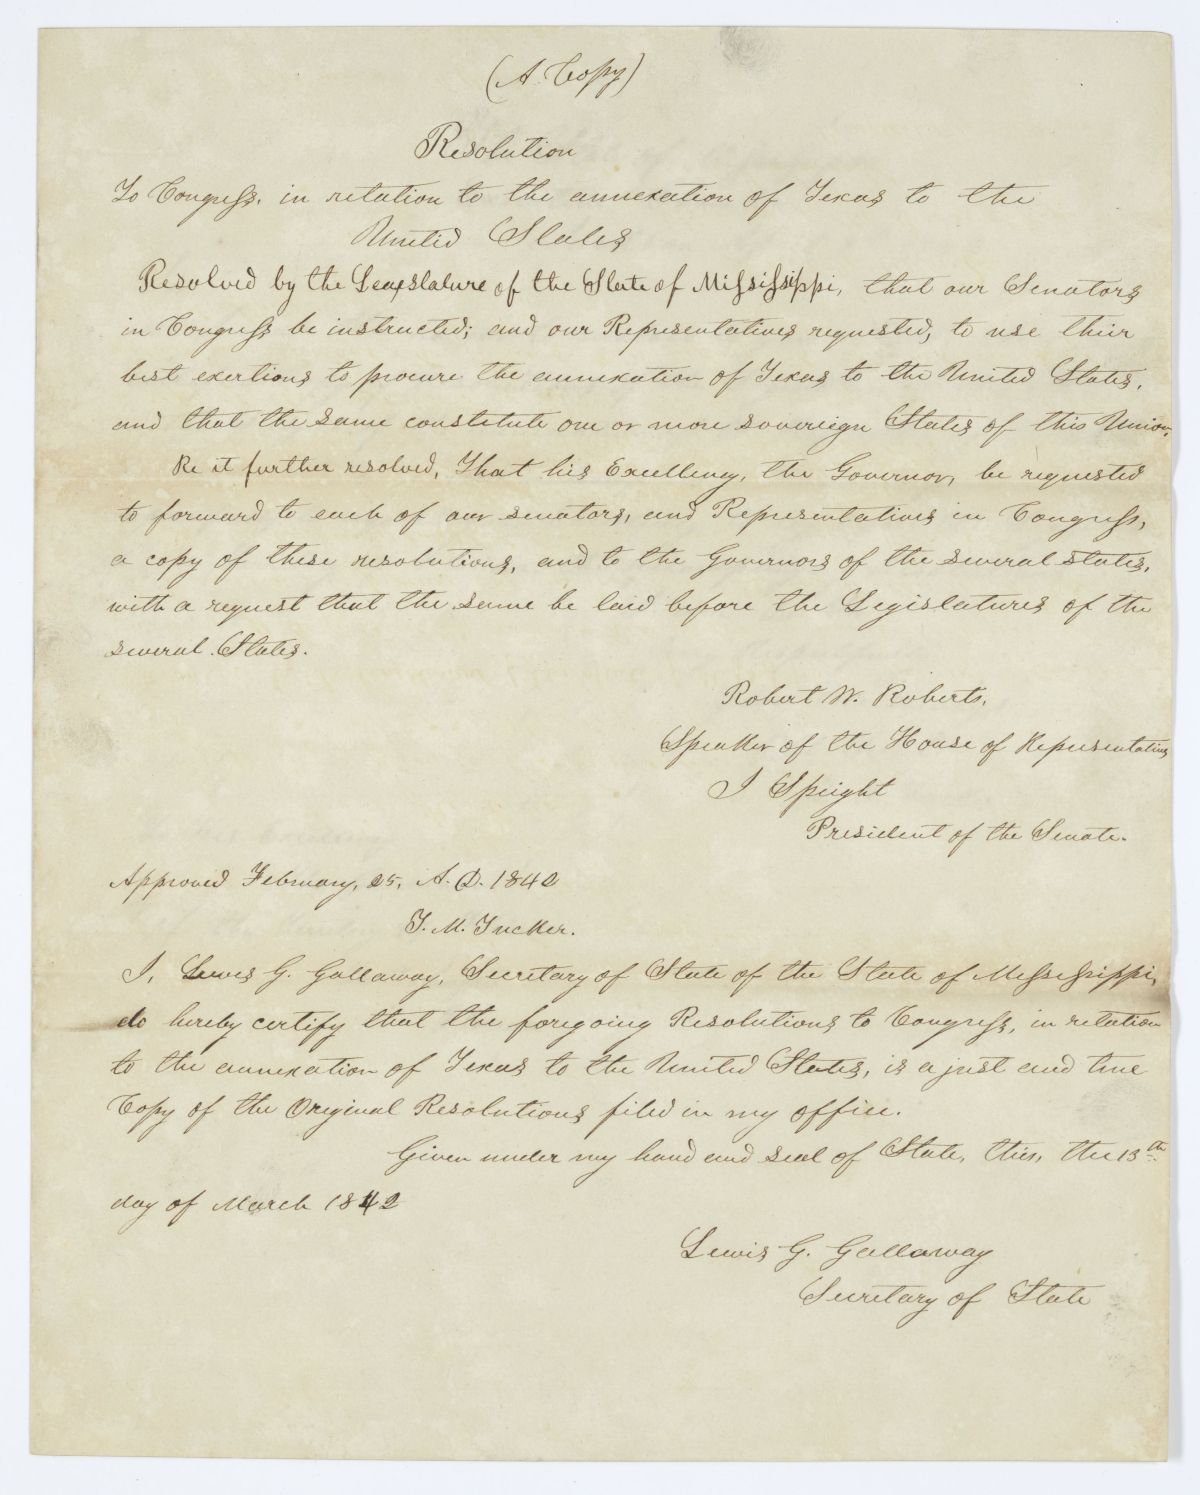 (A. Copy)
Resolution
To Congress, in relation to the annexation of Texas to the
United States
Resolved by the Legislature of the State of Mississippi, that our Senators
in Congress be instructed; and our Representatives requested, to use their
best exertions to procure the annexation of Texas to the United States,
and that the same constitute one or more sovereign States of this Union.
Be it further resolved, That his Excellency, the Governor, be requested
to forward to each of our senators, and Representatives in Congress,
a copy of these resolutions, and to the Governors of the several states,
with a request that the same be laid before the Legislatures of the
several States.
Robert W. Roberts,
Speaker of the House of Representatives
J Speight
President of the Senate.
Approved February, 25, A. D. 1842
T. M. Tucker.
I, Lewis G. Gallaway, Secretary of State of the State of Mississippi,
do hereby certify that the foregoing Resolutions to Congress, in relation
to the annexation of Texas to the United States, is a just and true
Copy of the Original Resolutions filed in my office.
Given under my hand and seal of State, this, the 13th
day of March 1842
Lewis G. Gallaway
Secretary of State